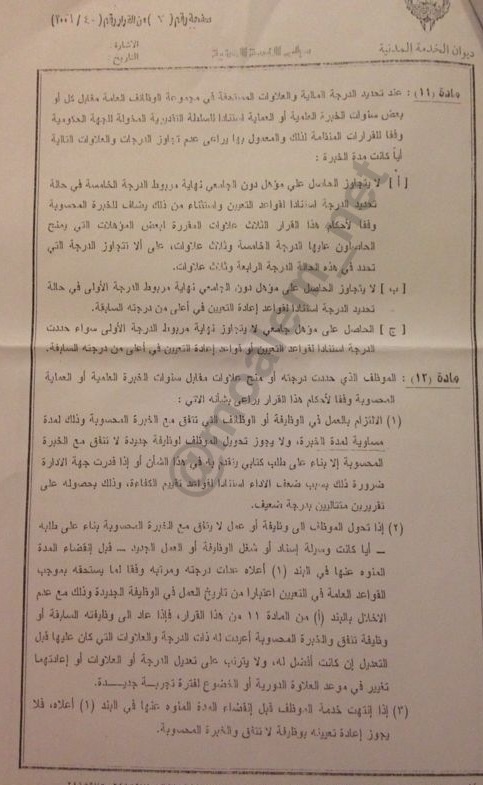 صفحة رقم ( ٦ ) من القرار رقم ( ٤٠ / ٢٠٠٦ )
ديوان الخدمة المدنية
الاشارة :
التاريخ
مادة (١١) : عند تحديد الدرجة المالية والعلاوات المستحقة في مجموعة الوظائف العامة مقابل كل أو
بعض سنوات الخبرة العلمية أو العملية استنادا للسلطة التقديرية المخولة للجهة الحكومية
وفقا للقرارات المنظمة لذلك والمعمول بها يراعى عدم تجاوز الدرجات والعلاوات التالية
أيا كانت مدة الخبرة :
[ أ ] لا يتجاوز الحاصل على مؤهل دون الجامعي نهاية مربوط الدرجة الخامسة في حالة
تحديد الدرجة استنادا لقواعد التعيين واستثناء من ذلك يضاف للخبرة المحسوبة
وفقا لأحكام هذا القرار الثلاث علاوات المقررة لبعض المؤهلات التي يمنح
الحاصلون عليها الدرجة الخامسة وثلاث علاوات، على ألا تتجاوز الدرجة التي
تحدد في هذه الحالة الدرجة الرابعة وثلاث علاوات.
[ ب ] لا يتجاوز الحاصل على مؤهل دون الجامعي نهاية مربوط الدرجة الأولى في حالة
تحديد الدرجة استنادا لقواعد إعادة التعيين في أعلى من درجته السابقة.
[ ج ] الحاصل على مؤهل جامعي لا يتجاوز نهاية مربوط الدرجة الأولى سواء حددت
الدرجة استنادا لقواعد التعيين أو قواعد إعادة التعيين في أعلى من درجته السابقة.
مادة (١٢) : الموظف الذي حددت درجته أو منح علاوات مقابل سنوات الخبرة العلمية أو العملية
المحسوبة وفقا لأحكام هذا القرار يراعى بشأنه الآتي :
(١) الالتزام بالعمل في الوظيفة أو الوظائف التي تتفق مع الخبرة المحسوبة وذلك لمدة
مساوية لمدة الخبرة، ولا يجوز تحويل الموظف لوظيفة جديدة لا تتفق مع الخبرة
المحسوبة إلا بناء على طلب كتابي يتقدم به في هذا الشأن أو إذا قدرت جهة الادارة
ضرورة ذلك بسبب ضعف الاداء استنادا لقواعد تقييم الكفاءة، وذلك بحصوله على
تقريرين متتاليين بدرجة ضعيف.
(٢) إذا تحول الموظف الى وظيفة أو عمل لا يتفق مع الخبرة المحسوبة بناء على طلبه
ــ أيا كانت وسيلة إسناد أو شغل الوظيفة أو العمل الجديد ــ قبل إنقضاء المدة
المنوه عنها في البند (١) أعلاه عدلت درجته ومرتبه وفقا لما يستحقه بموجب
القواعد العامة في التعيين اعتبارا من تاريخ العمل في الوظيفة الجديدة وذلك مع عدم
الاخلال بالبند (أ) من المادة ١١ من هذا القرار، فإذا عاد الى وظيفته السابقة أو
وظيفة تتفق والخبرة المحسوبة أعيدت له ذات الدرجة والعلاوات التي كان عليها قبل
التعديل إن كانت أفضل له، ولا يترتب على تعديل الدرجة أو العلاوات أو إعادتهما
تغيير في موعد العلاوة الدورية أو الخضوع لفترة تجربة جديـدة.
(٣) إذا إنتهت خدمة الموظف قبل إنقضاء المدة المنوه عنها في البند (١) أعلاه، فلا
يجوز إعادة تعيينه بوظيفة لا تتفق والخبرة المحسوبة.
@moalem_net